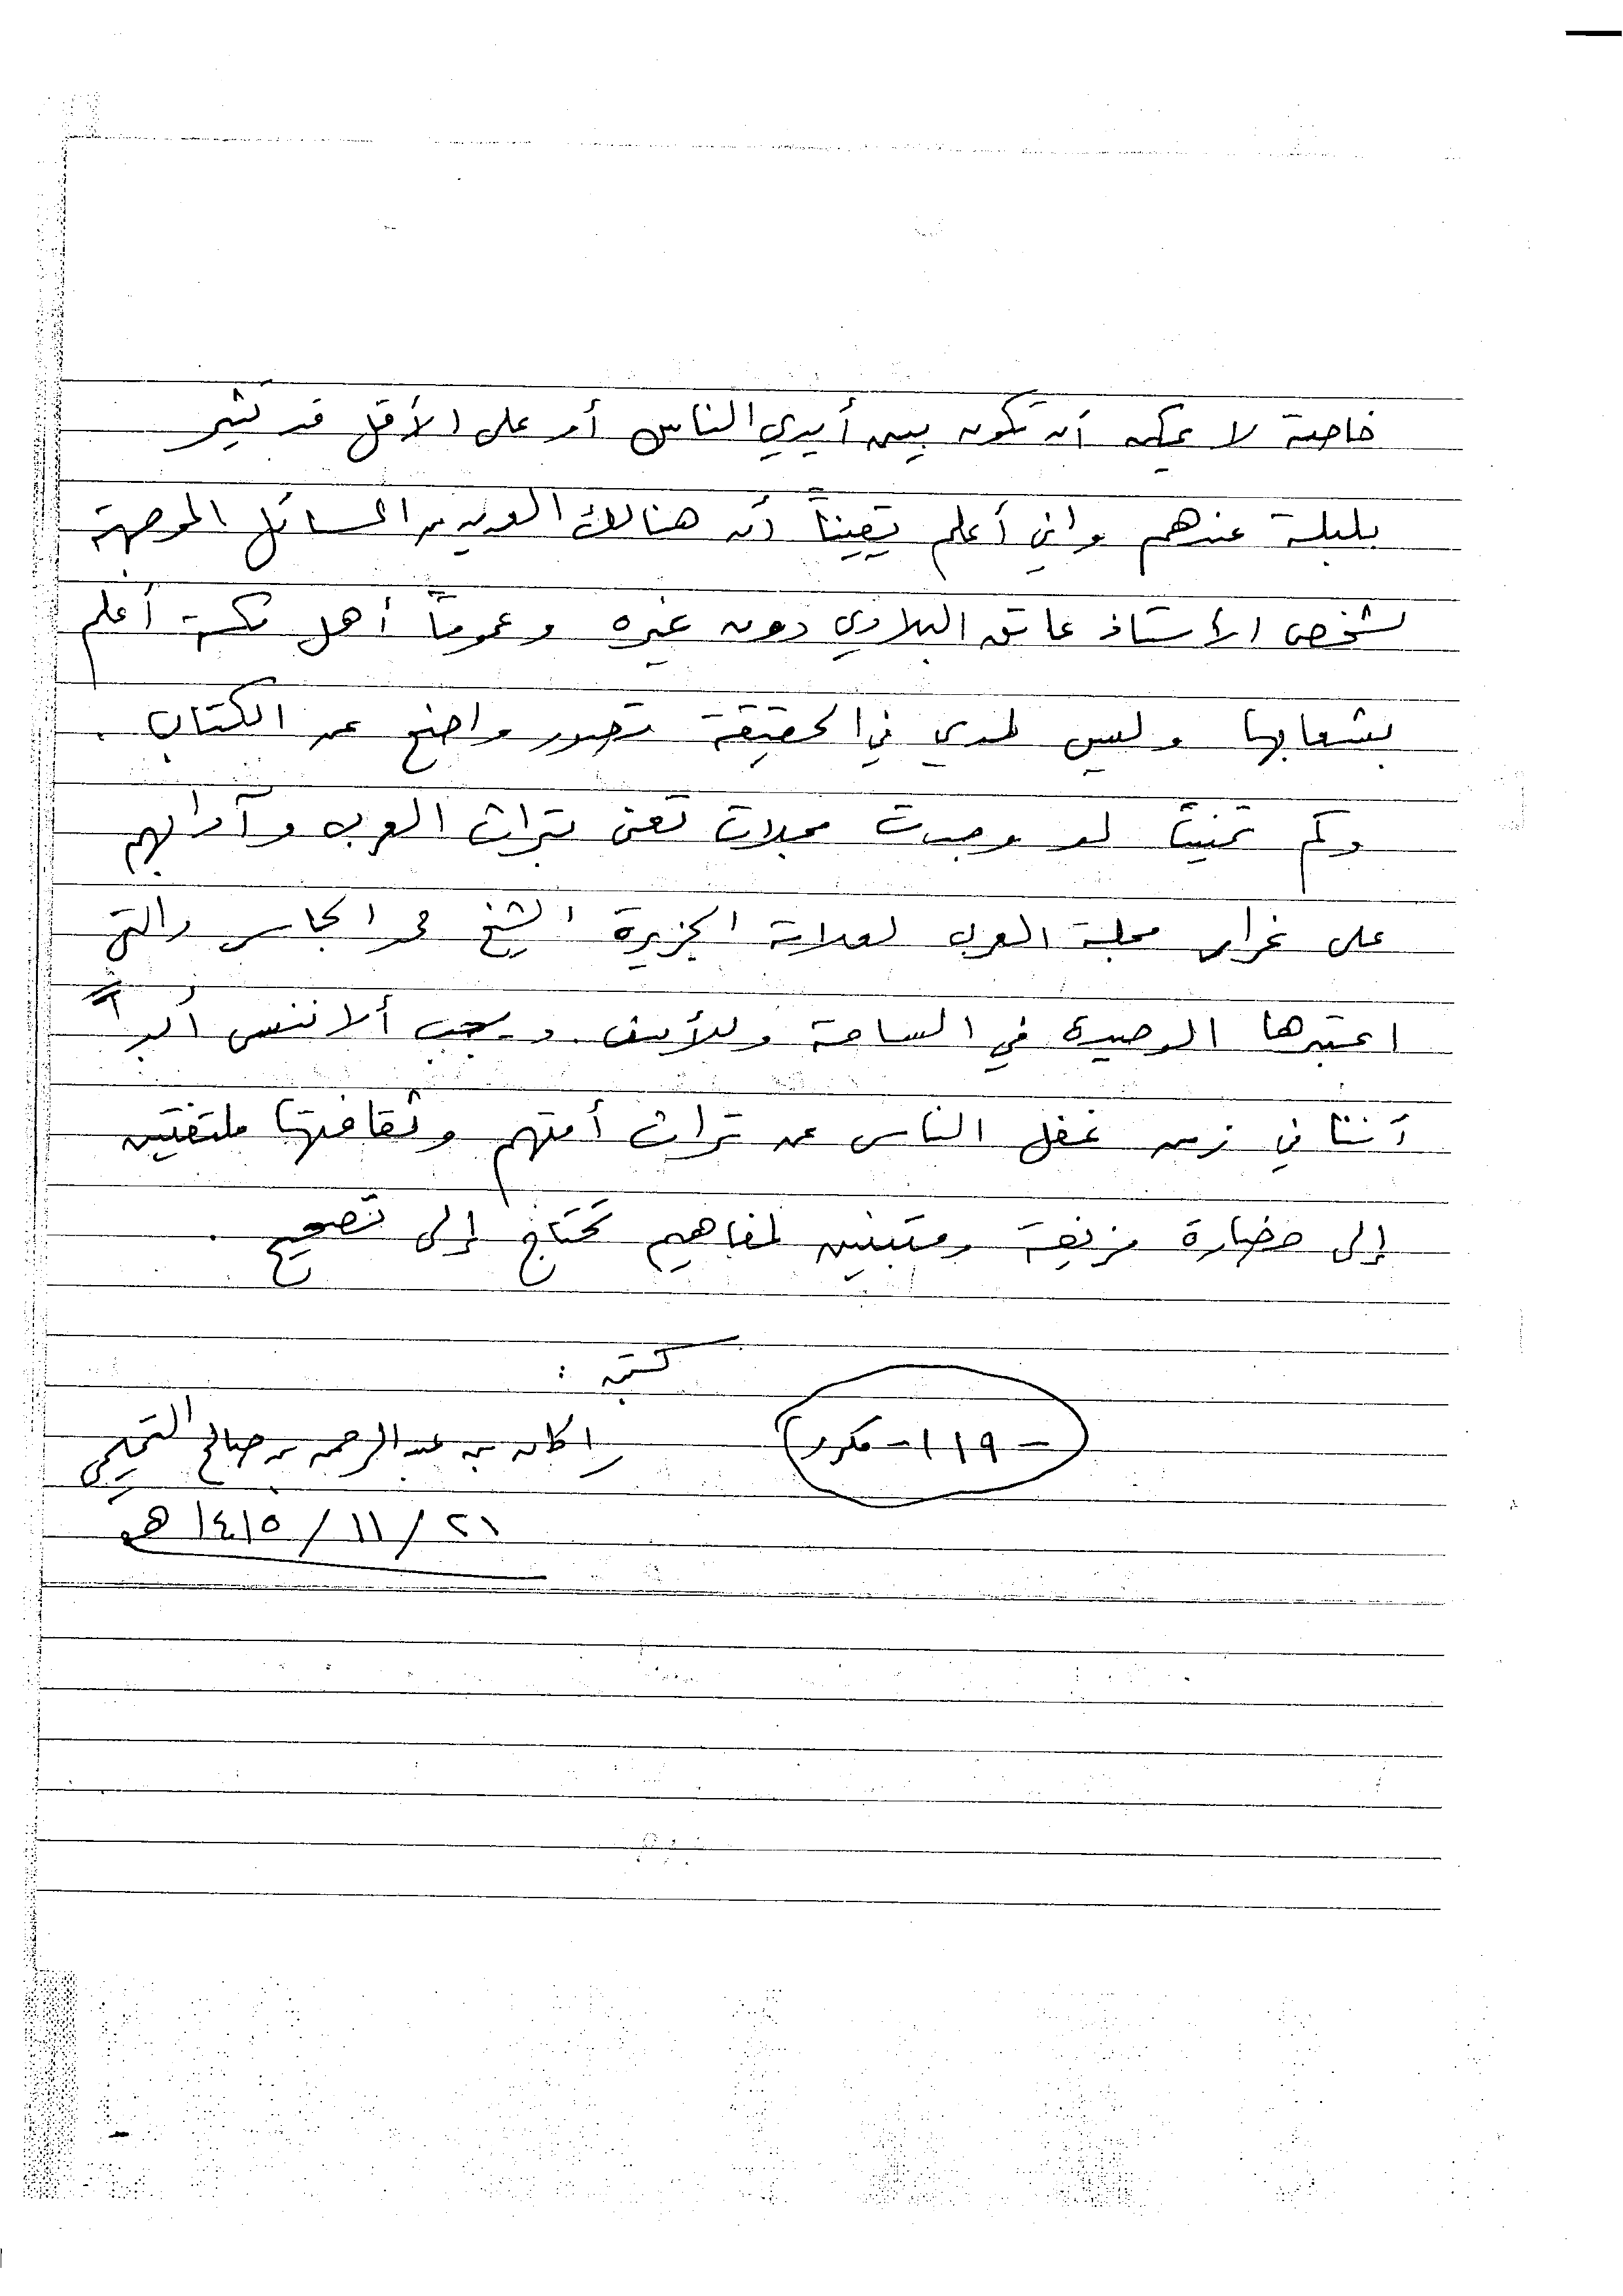 خاصة لا يمكن أن تكون بين أيدي الناس أو على الأقل قد تثير
بلبلة عندهم واني أعلم يقيناً أن هنالك العديد من المسائل الموجهة
لشخص الأستاذ عاتق البلادي دون غيره وعموماً أهل مكة أعلم
بشعابها وليس لدي في الحقيقة تصور واضح عن الكتاب .
وكم تمنيت لو وجدت مجلات تعنى بتراث العرب وآدابهم
على غرار مجلة العرب لعلامة الجزيرة الشيخ حمد الجاسر والتي
اعتبرها الوحيدة في الساحة وللأسف . ويجب ألا ننسى أبداً
أننا في زمن غفل الناس عن تراث أمتهم وثقافتها ملتفتين
إلى حضارة مزيفة ومتبنين لمفاهيم تحتاج إلى تصحيح .
كتبه :
راكان بن عبدالرحمن بن صالح التميمي
(- ١١٩ - مكرر)
٢١ / ١١ / ١٤١٥ هـ